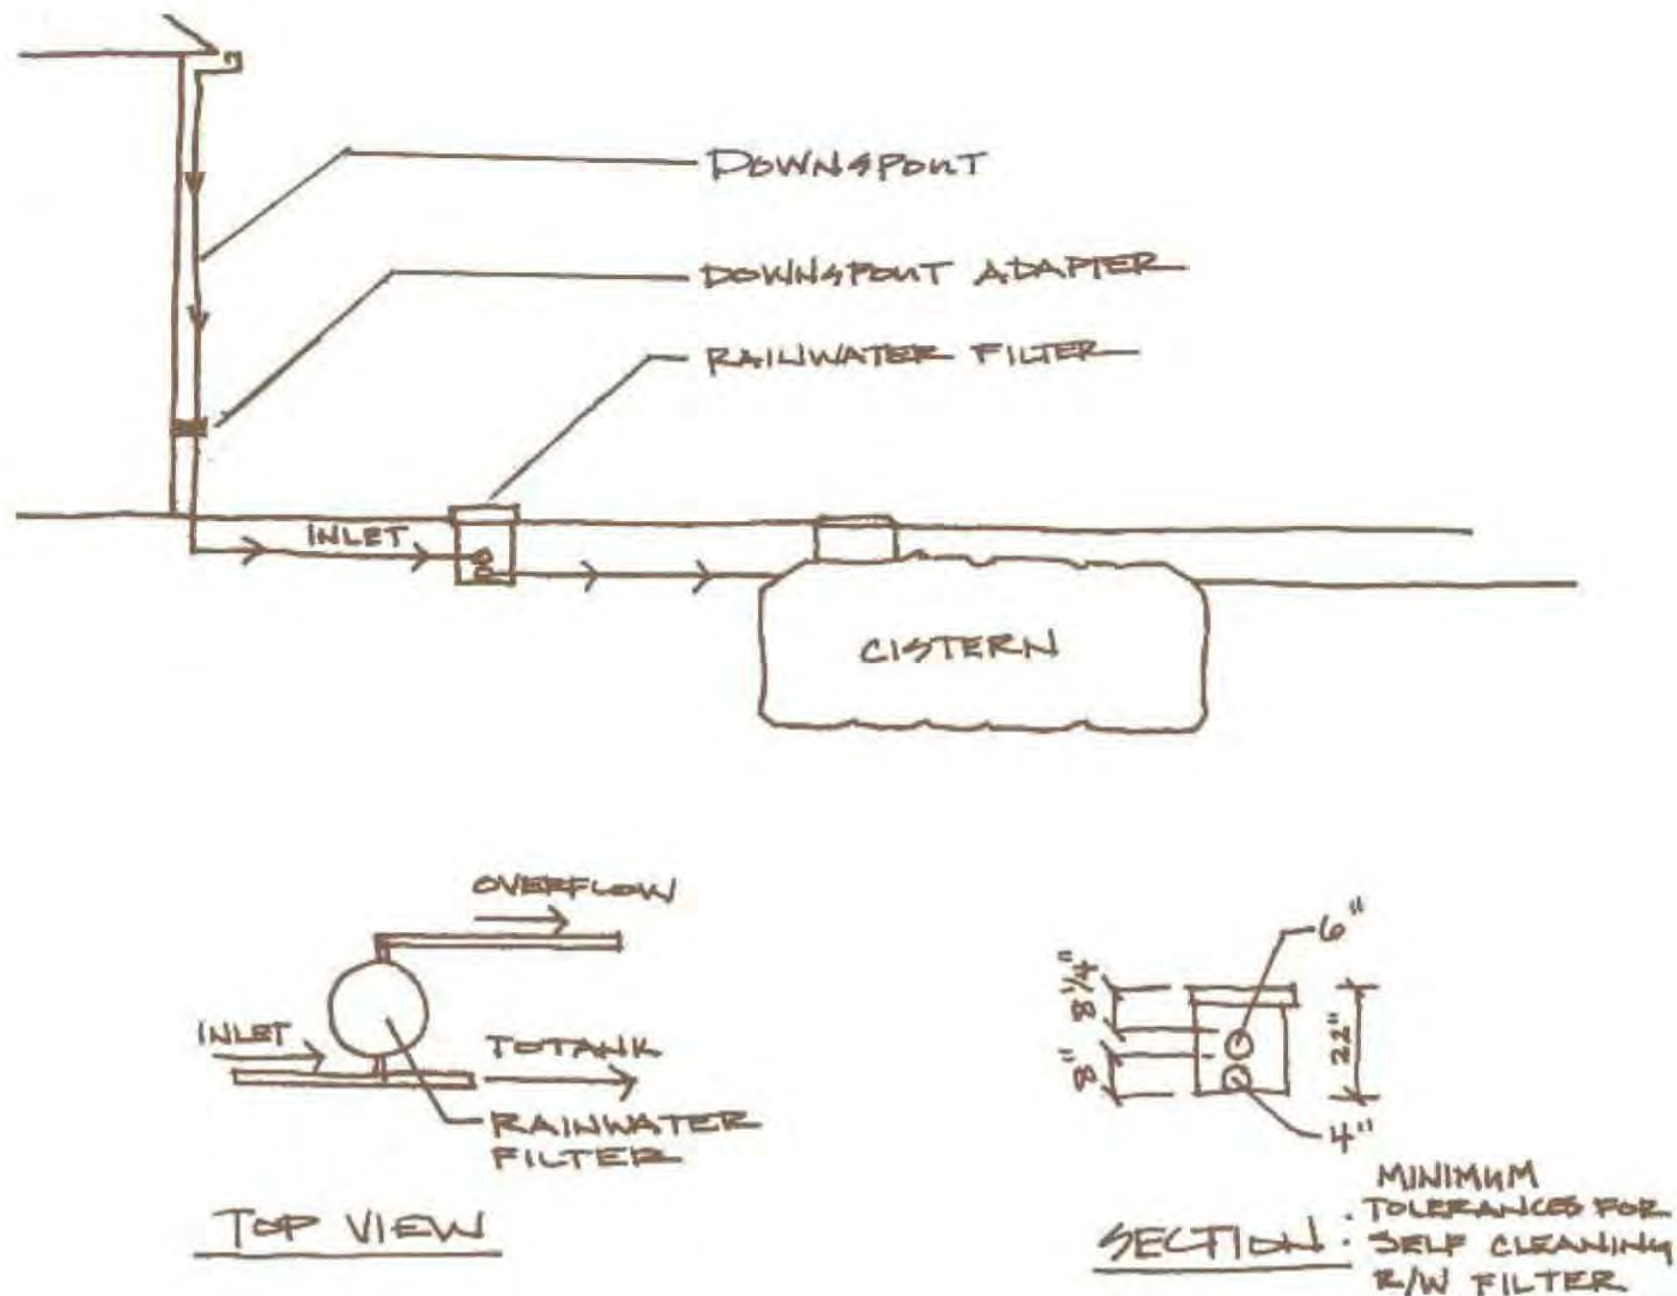 DOWNSPOUT
DOWNSPOUT ADAPTER
RAINWATER FILTER
INLET
CISTERN
OVERFLOW
INLET
TO TANK
RAINWATER
FILTER
TOP VIEW
6"
8 1/4"
8"
22"
4"
SECTION :
MINIMUM
TOLERANCES FOR
SELF CLEANING
R/W FILTER